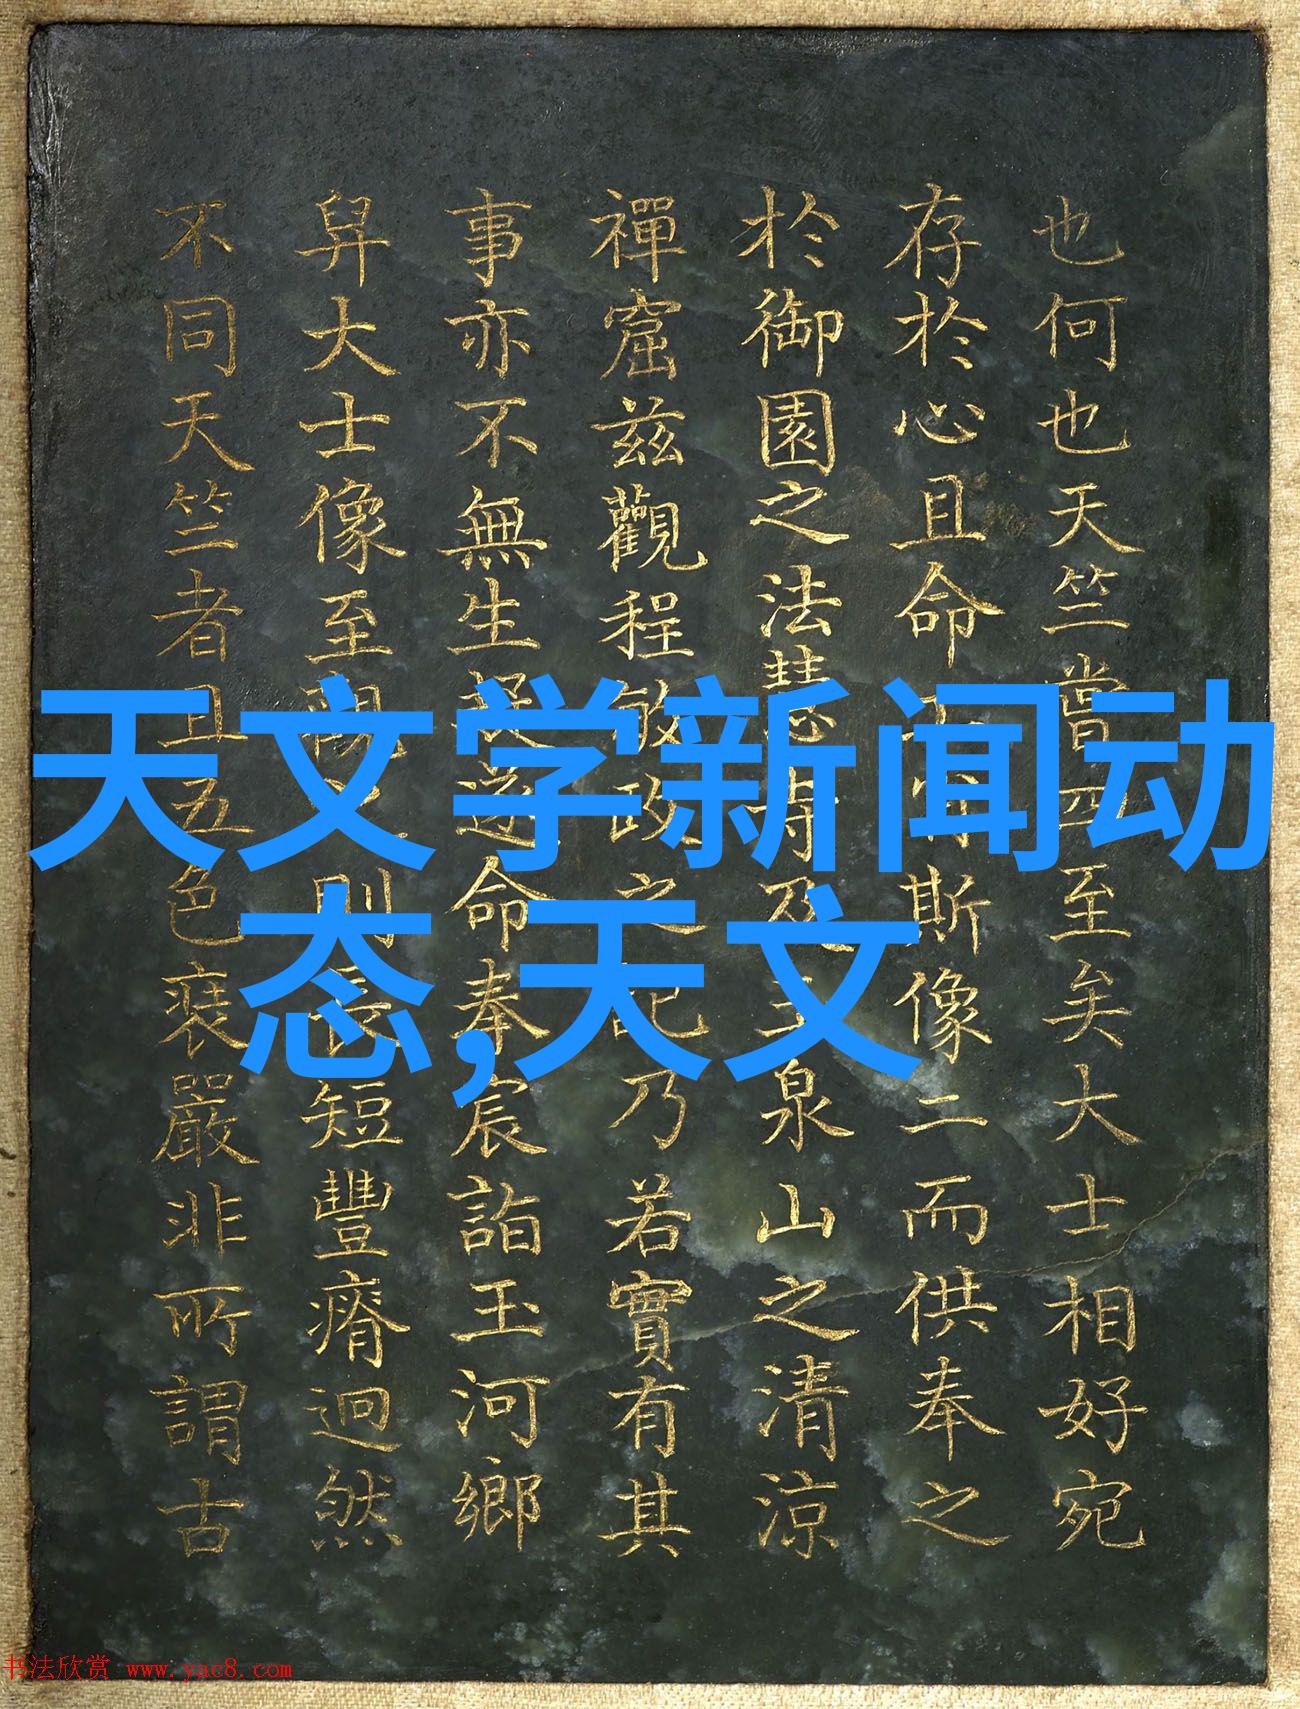 也何也天竺嘗四至矣大士相好宛
存於心且命斯像二而供奉之
於御園之法慧寺及玉泉山之清涼
禪窟兹觀程敏政之記乃若實有其
事亦不無生疑遂命奉宸詣玉河鄉
舁大士像至觀之則長短豐瘠迥然
不同天竺者且五色裝嚴非所謂古
天文学新闻动
态,天文
书法欣赏 www.yac8.com